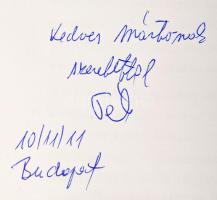 Kedves Mártonnak
szeretettel
10/11/11
Budapest